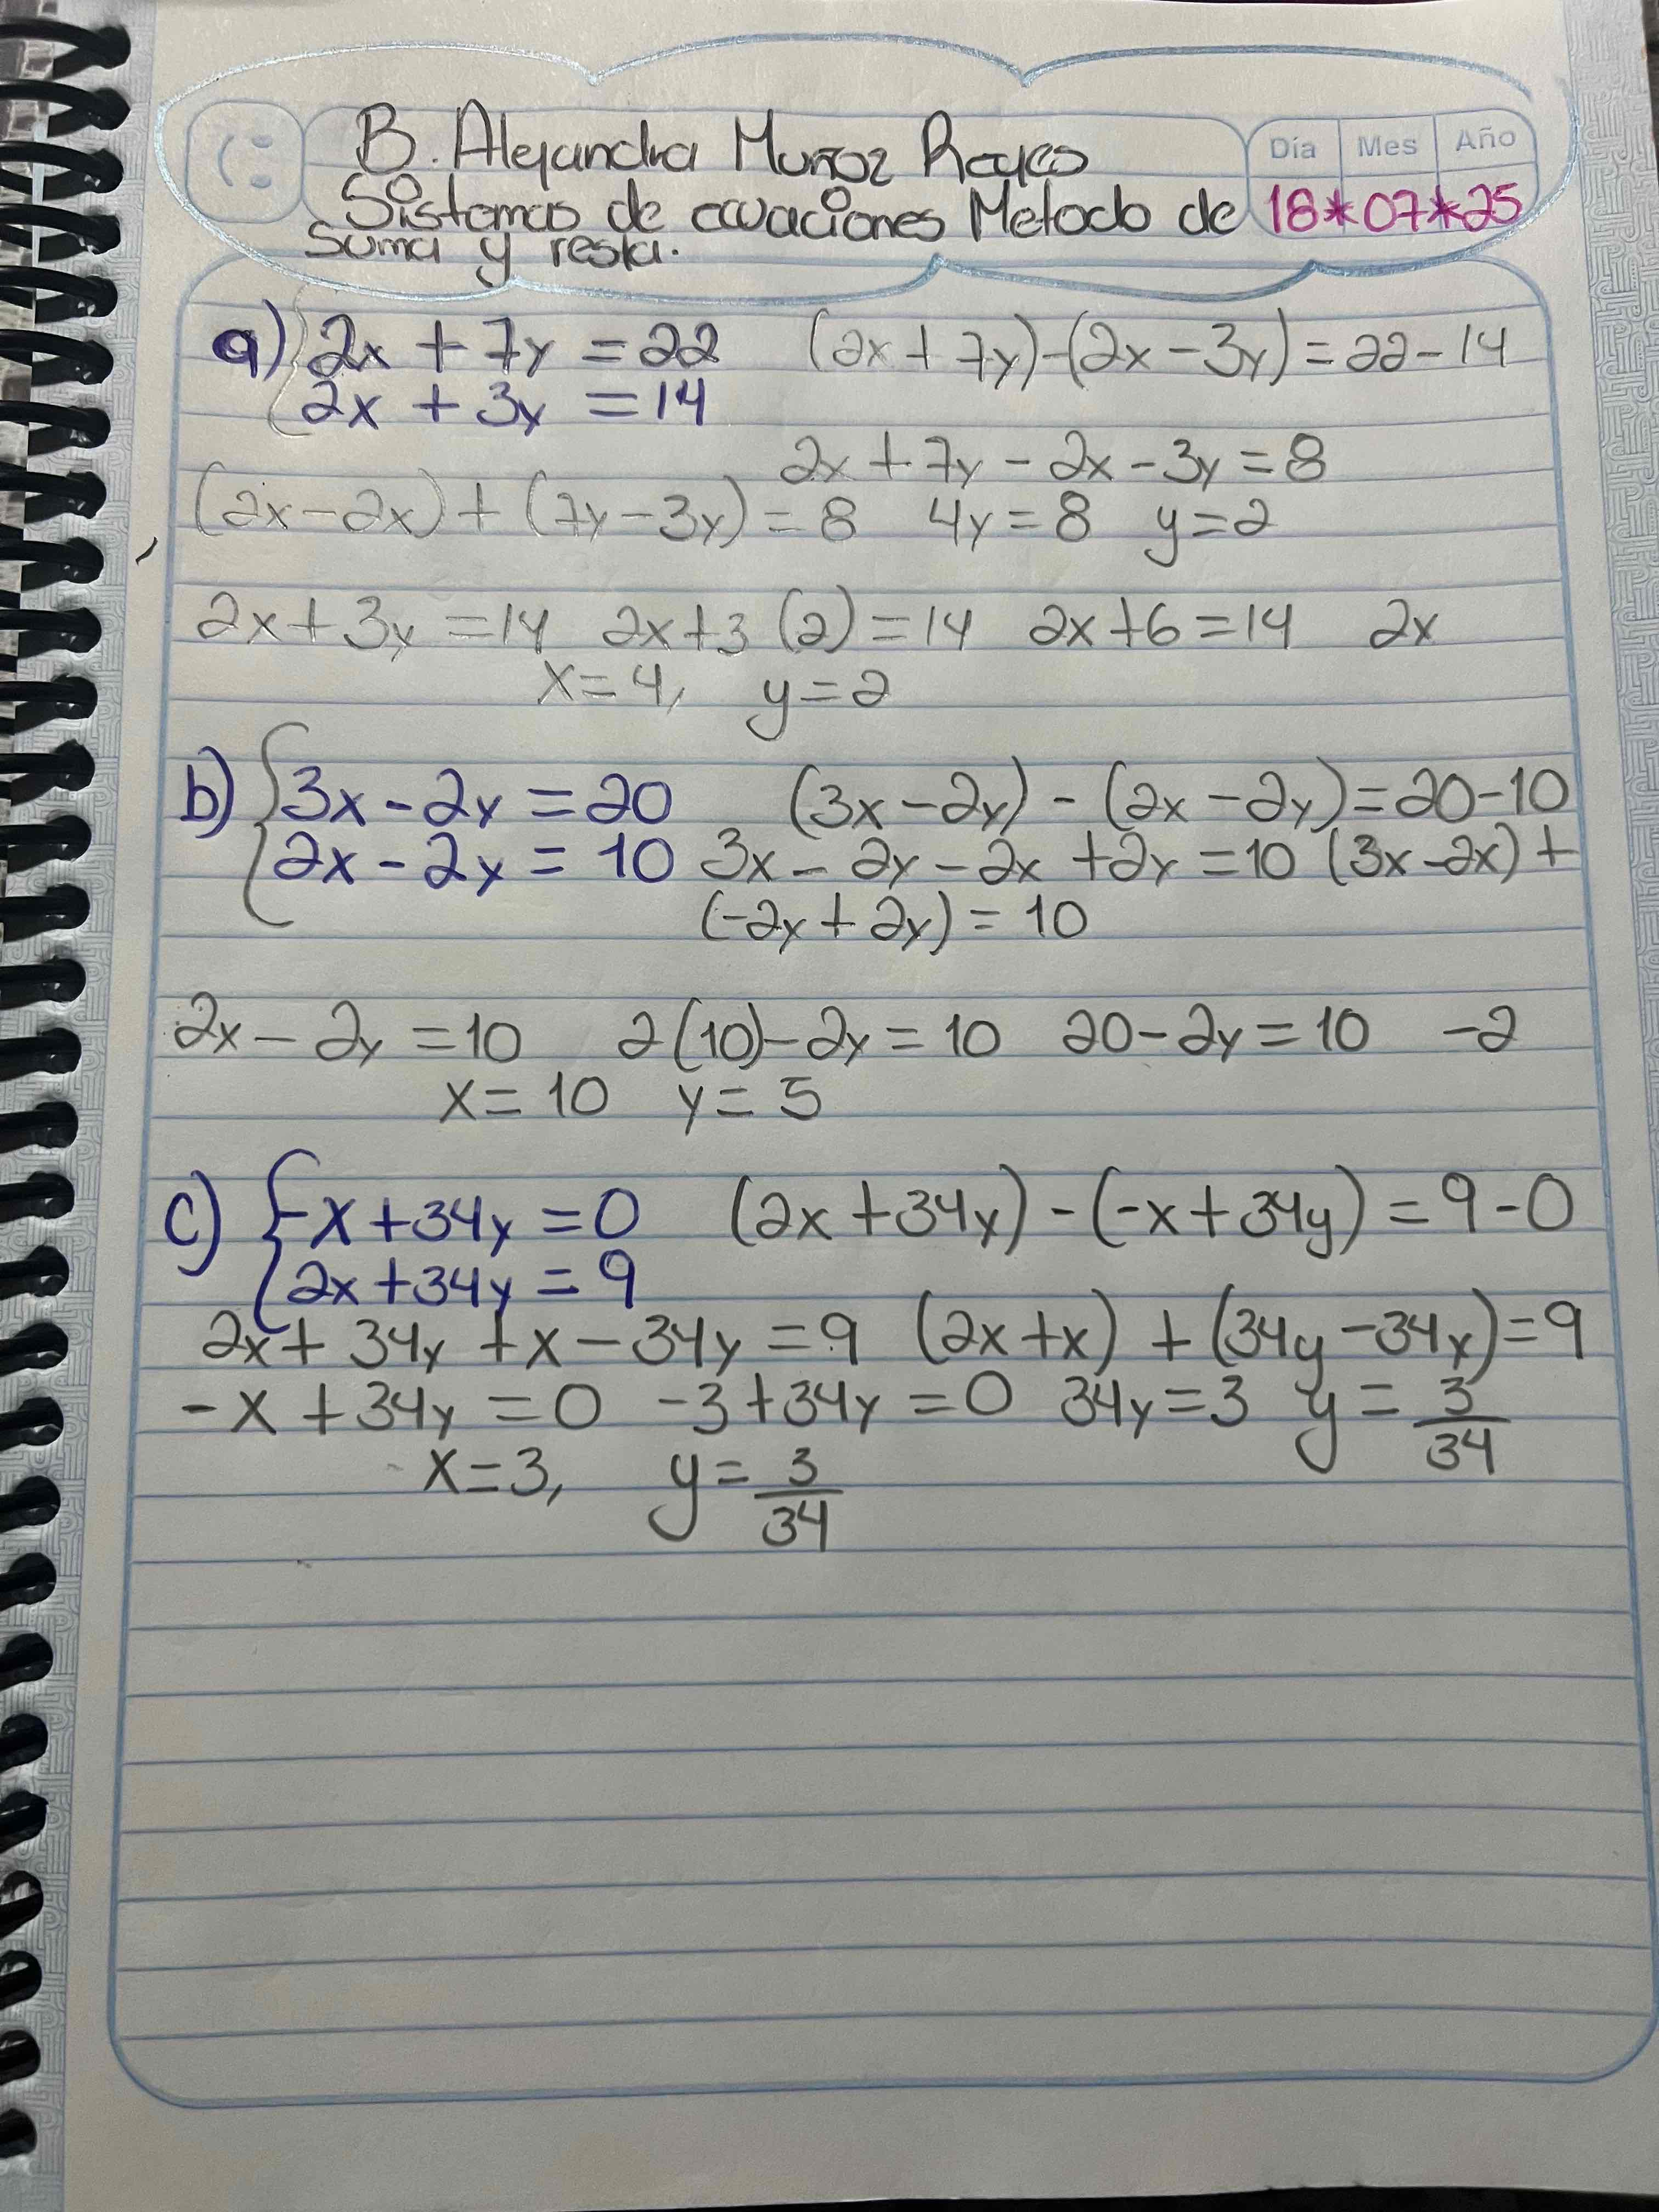 B. Alejandra Muñoz Reyes
Día Mes Año
Sistemas de ecuaciones Metodo de 18*07*25
suma y resta.
a) 2x + 7y = 22 (2x + 7y) - (2x - 3y) = 22 - 14
2x + 3y = 14
2x + 7y - 2x - 3y = 8
(2x - 2x) + (7y - 3y) = 8 4y = 8 y = 2
2x + 3y = 14 2x + 3 (2) = 14 2x + 6 = 14 2x
x = 4, y = 2
b) 3x - 2y = 20 (3x - 2y) - (2x - 2y) = 20 - 10
2x - 2y = 10 3x - 2y - 2x + 2y = 10 (3x - 2x) +
(-2y + 2y) = 10
2x - 2y = 10 2(10) - 2y = 10 20 - 2y = 10 -2
x = 10 y = 5
c) -x + 34y = 0 (2x + 34y) - (-x + 34y) = 9 - 0
2x + 34y = 9
2x + 34y + x - 34y = 9 (2x + x) + (34y - 34y) = 9
-x + 34y = 0 -3 + 34y = 0 34y = 3 y = 3/34
x = 3, y = 3/34